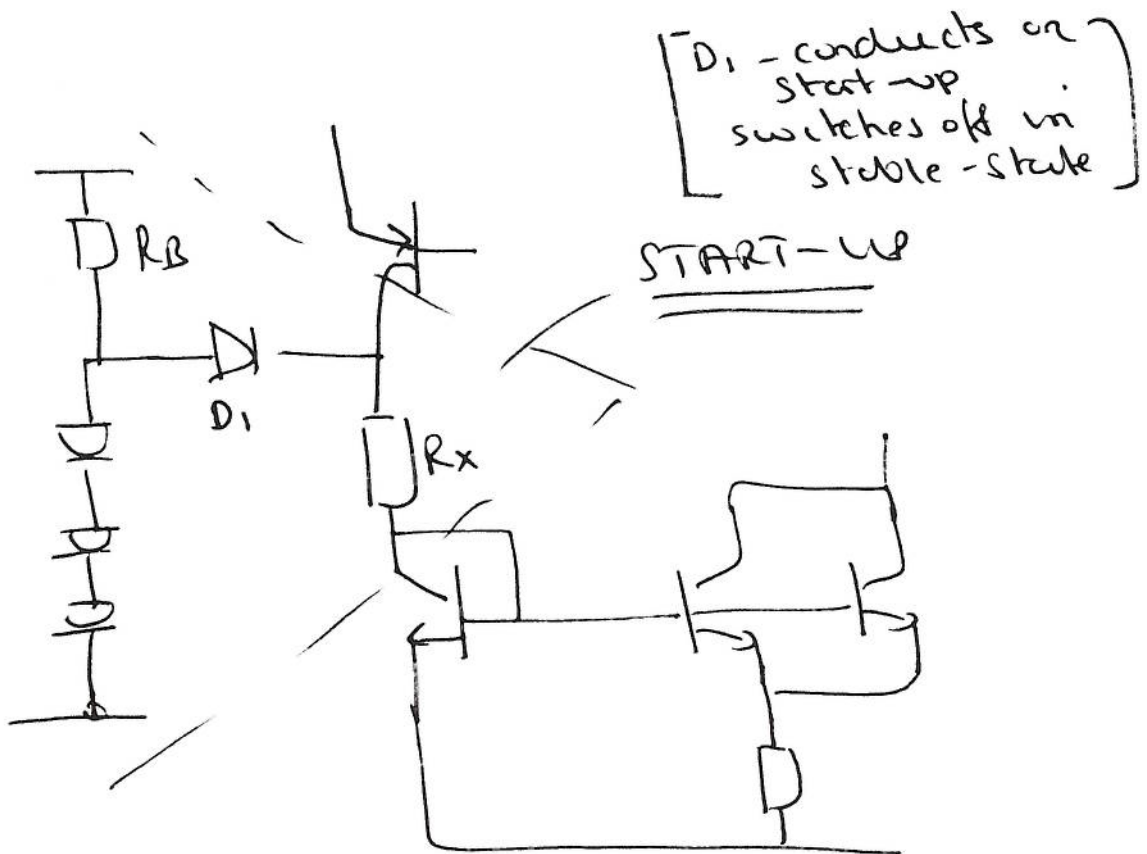 D1 - conducts on
start-up
switches off in
stable-state
START-UP
RB
D1
Rx